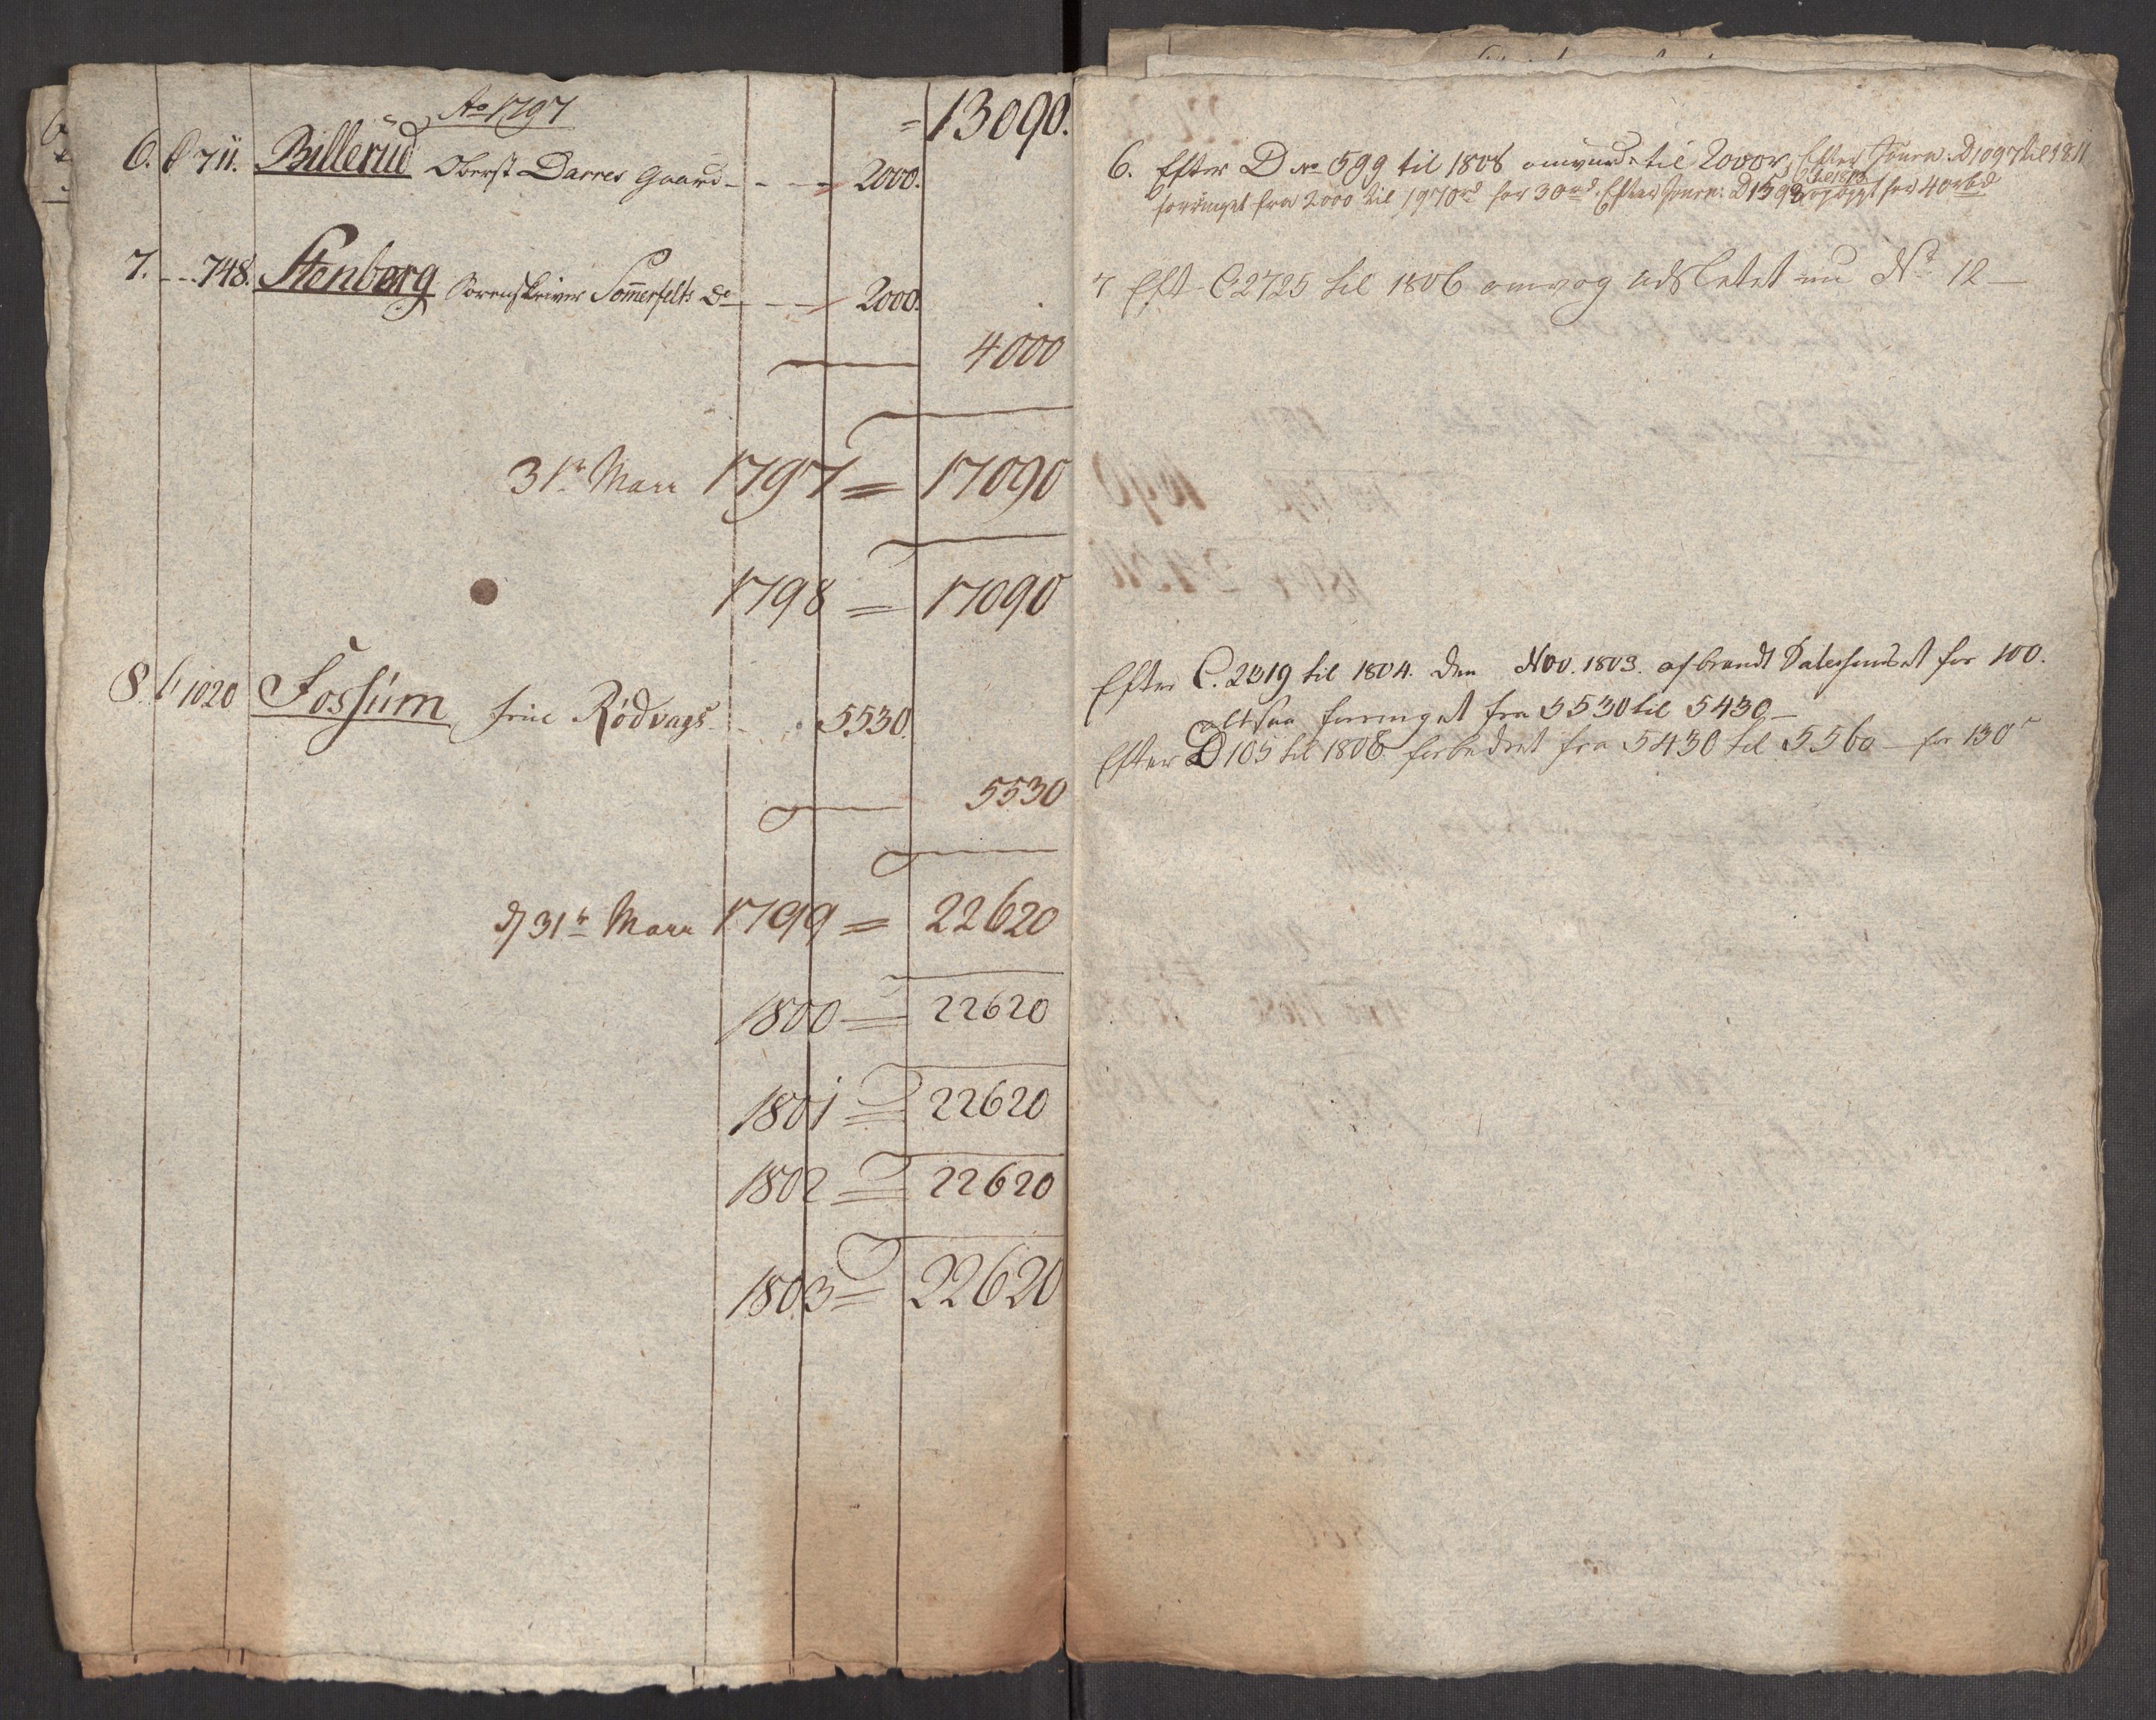 Ao 1797
= 13090.
6. C 711. Billerud Oberst Darres Gaard - - - 2000.
7. - - 748. Stenberg Sorenskriver Sommerfelts Do - - 2000.
4000
31te Marz 1797 = 17090
1798 = 17090
8. C 1020 Fossum Frue Rødvags - - 5530.
5530
d 31te Marz 1799 = 22620
1800 = 22620
1801 = 22620
1802 = 22620
1803 = 22620
6. Efter D No 599 til 1808 omvurd. til 2000 r, Efter Journ. D 1097 til 1811
forringet fra 2000 til 1970 rd for 30 rd. Efter Journ: D 1593 for 40 rbd
7 Eft C 2725 til 1806 omvog udslettet nu No 12 —
Efter C. 2319 til 1804. den Nov. 1803. afbrændt for 100.
altsaa forringet fra 5530 til 5430 —
Efter D 105 til 1808 forbedret fra 5430 til 5560 — for 130 r